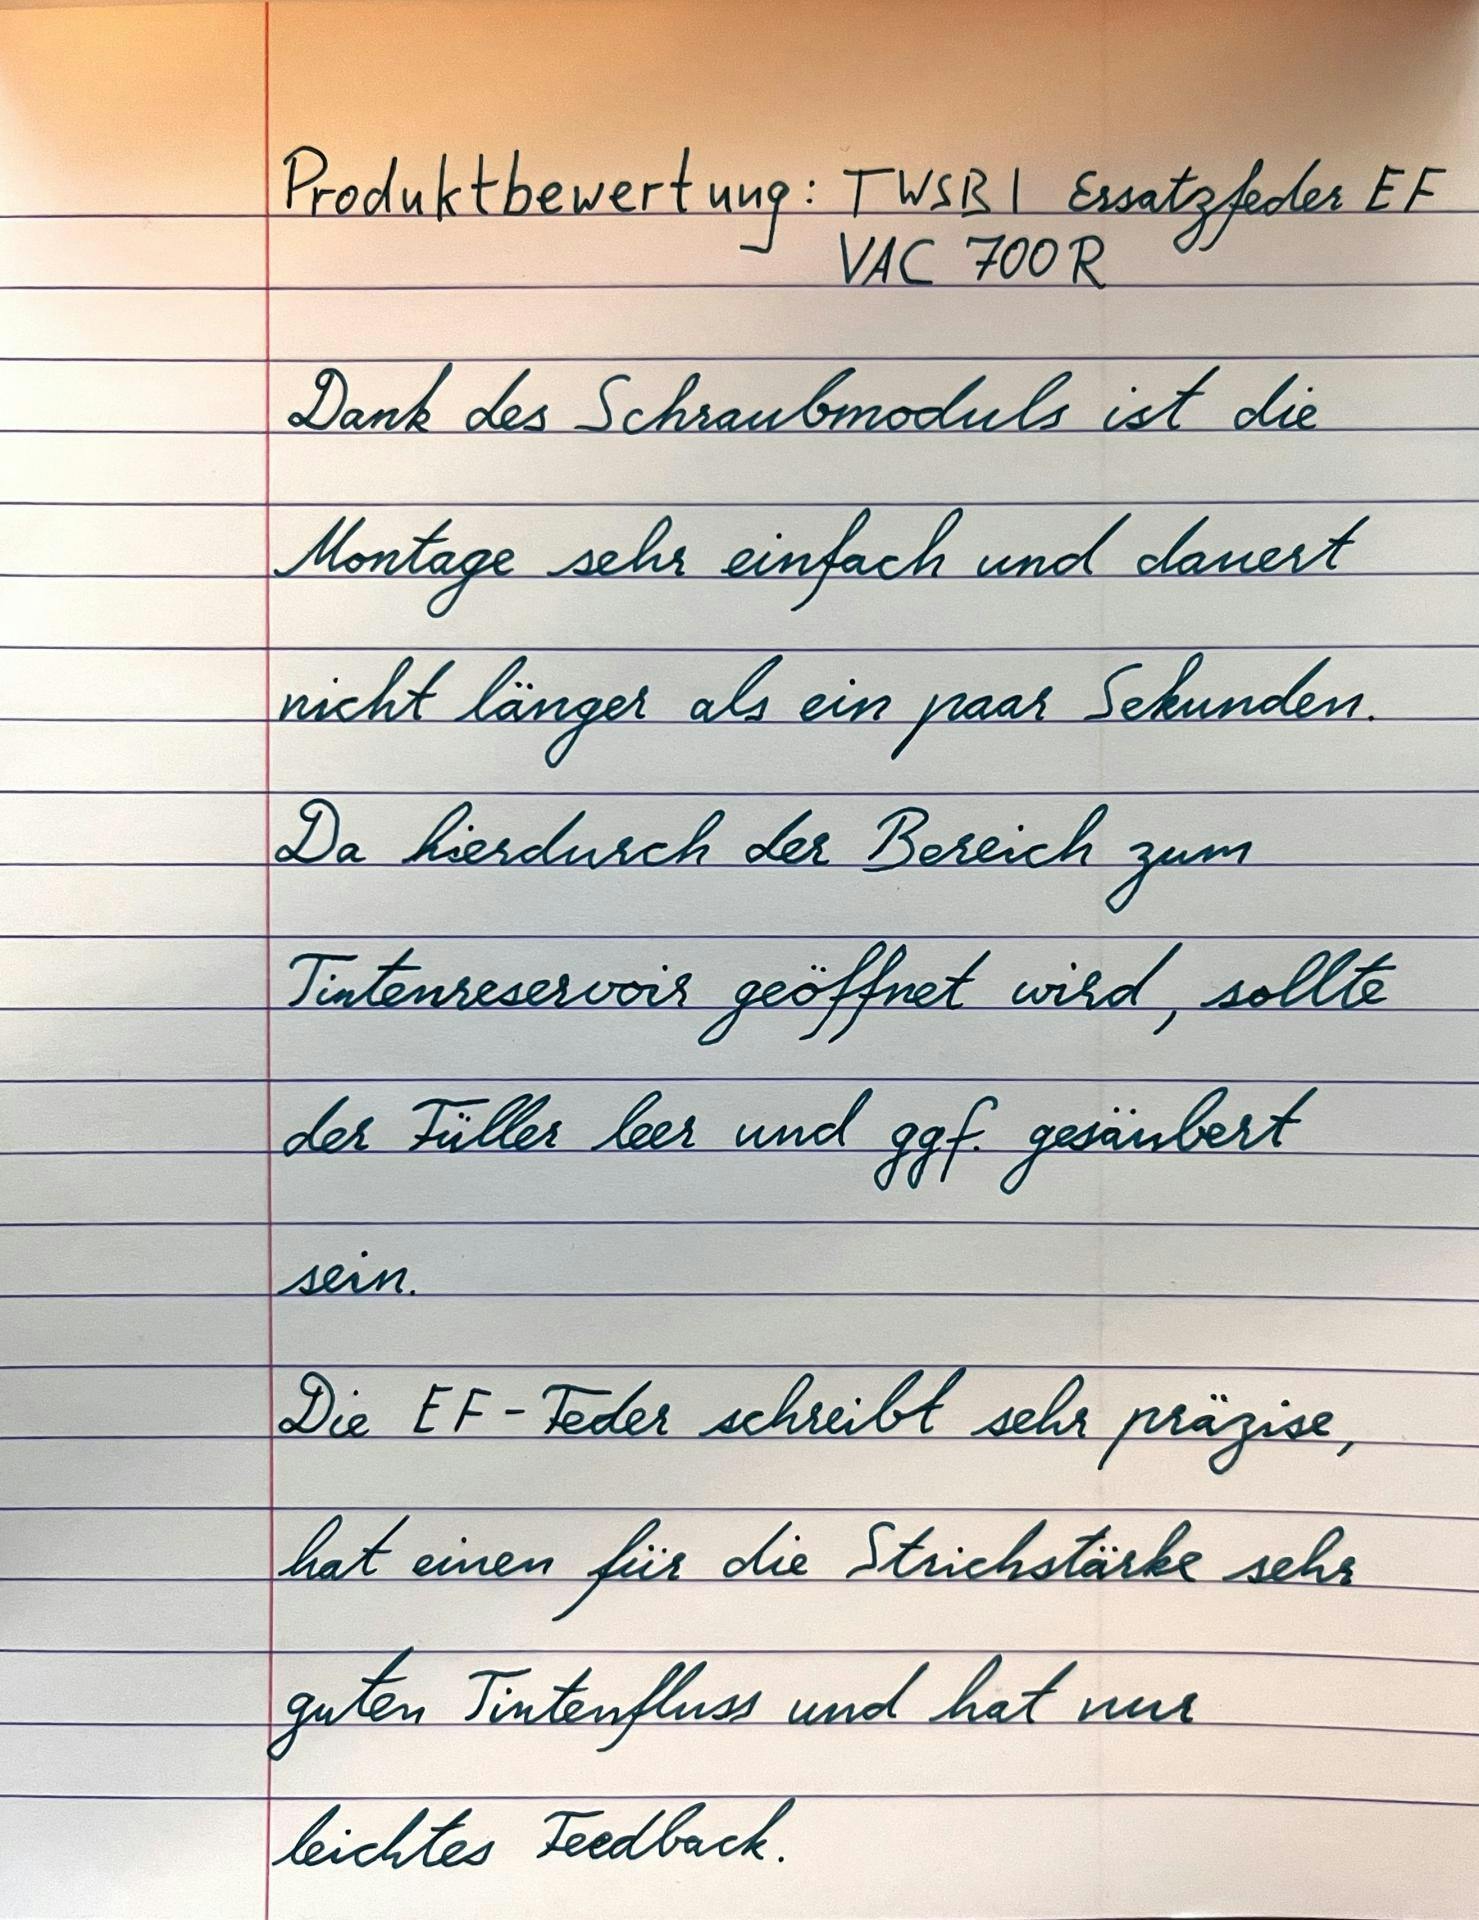 Produktbewertung: TWSBI Ersatzfeder EF
VAC 700R
Dank des Schraubmoduls ist die
Montage sehr einfach und dauert
nicht länger als ein paar Sekunden.
Da hierdurch der Bereich zum
Tintenreservoir geöffnet wird, sollte
der Füller leer und ggf. gesäubert
sein.
Die EF-Feder schreibt sehr präzise,
hat einen für die Strichstärke sehr
guten Tintenfluss und hat nur
leichtes Feedback.